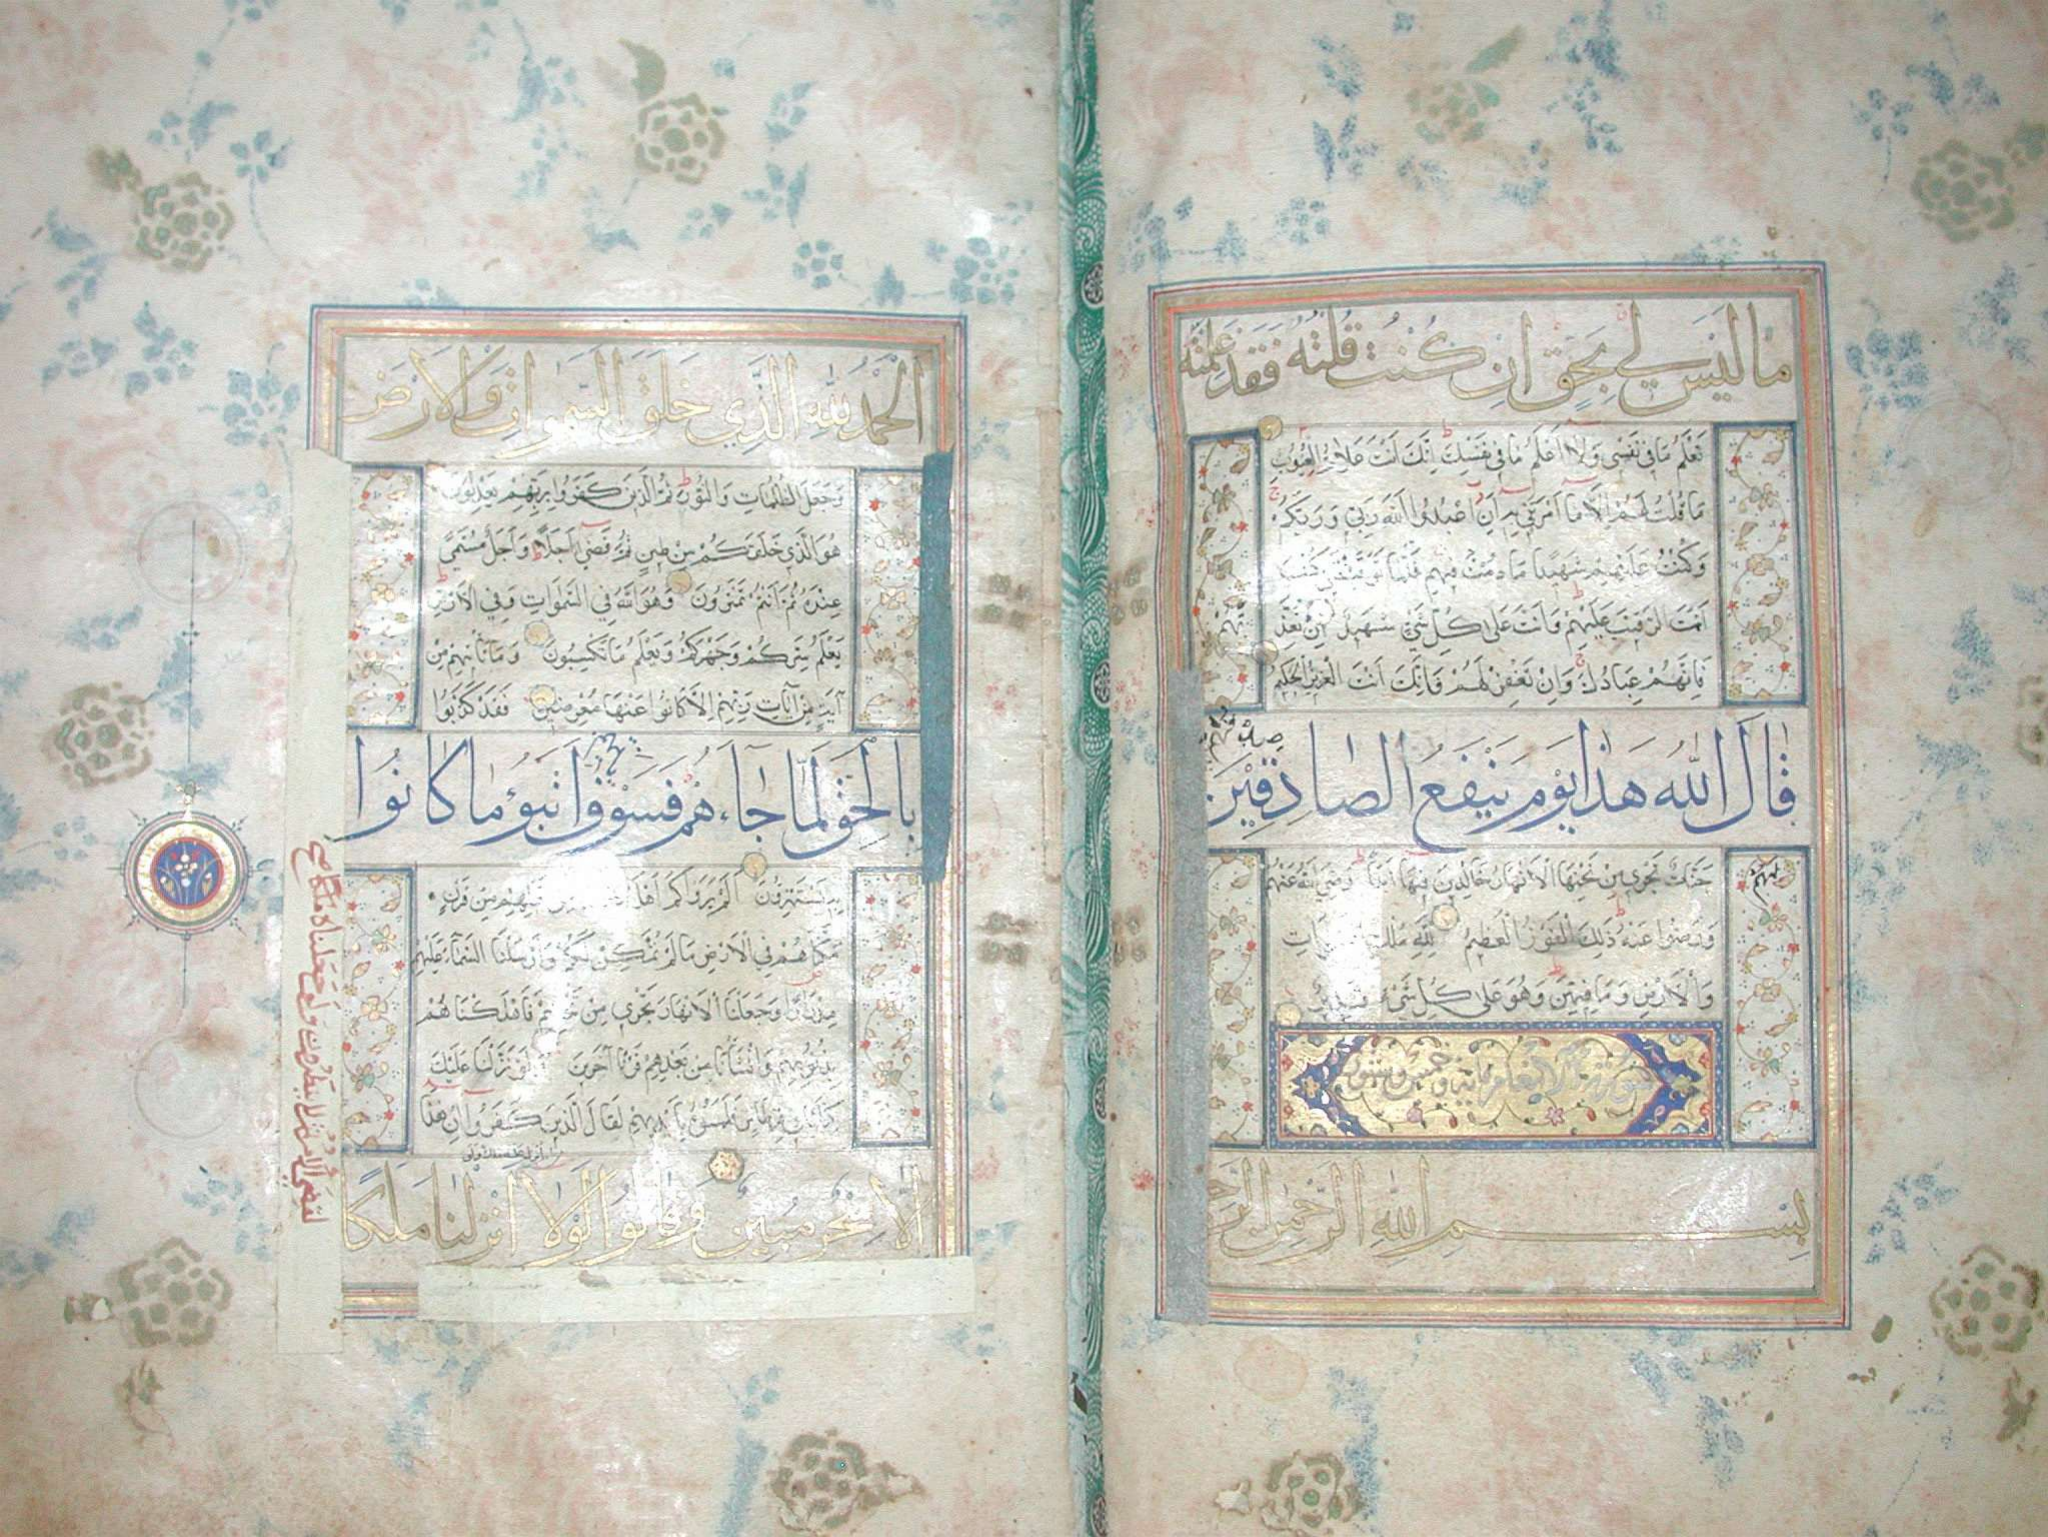 ما ليس لي بحق ان كنت قلته فقد علمته
تعلم ما في نفسي ولا اعلم ما في نفسك انك انت علام الغيوب
ما قلت لهم الا ما امرتني به ان اعبدوا الله ربي وربكم
وكنت عليهم شهيدا ما دمت فيهم فلما توفيتني كنت
انت الرقيب عليهم وانت على كل شئ شهيد ان تعذ
بهم
فانهم عبادك وان تغفر لهم فانك انت العزيز الحكيم
قال الله هذا يوم ينفع الصادقين
صدقهم
لهم
جنات تجري من تحتها الانهار خالدين فيها ابدا رضي الله عنهم
ورضوا عنه ذلك الفوز العظيم لله ملك السموات
والارض وما فيهن وهو على كل شئ قدير
سورة الانعام مایه وخمس وستون
بسم الله الرحمن الرحيم
الحمد لله الذي خلق السموات والارض
وجعل الظلمات والنور ثم الذين كفروا بربهم يعدلون
هو الذي خلقكم من طين ثم قضى اجلا واجل مسمى
عنده ثم انتم تمترون وهو الله في السموات وفي الارض
يعلم سركم وجهركم ويعلم ما تكسبون وما تأتيهم من
آية من آيات ربهم الا كانوا عنها معرضين فقد كذبوا
بالحق لما جاءهم فسوف انبؤا ما كانوا
به يستهزؤن الم يروا كم اهلكنا من قبلهم من قرن
مكناهم في الارض ما لم نمكن لكم وارسلنا السماء عليهم
مدرارا وجعلنا الانهار تجري من تحتهم فاهلكناهم
بذنوبهم وانشأنا من بعدهم قرنا آخرين ولو نزلنا عليك
كتابا في قرطاس فلمسوه بأيديهم لقال الذين كفروا ان هذا
الا سحر مبين وقالوا لولا انزل
نا ملكا
لقضي الامر ثم لا ينظرون ولو جعلناه ملكا